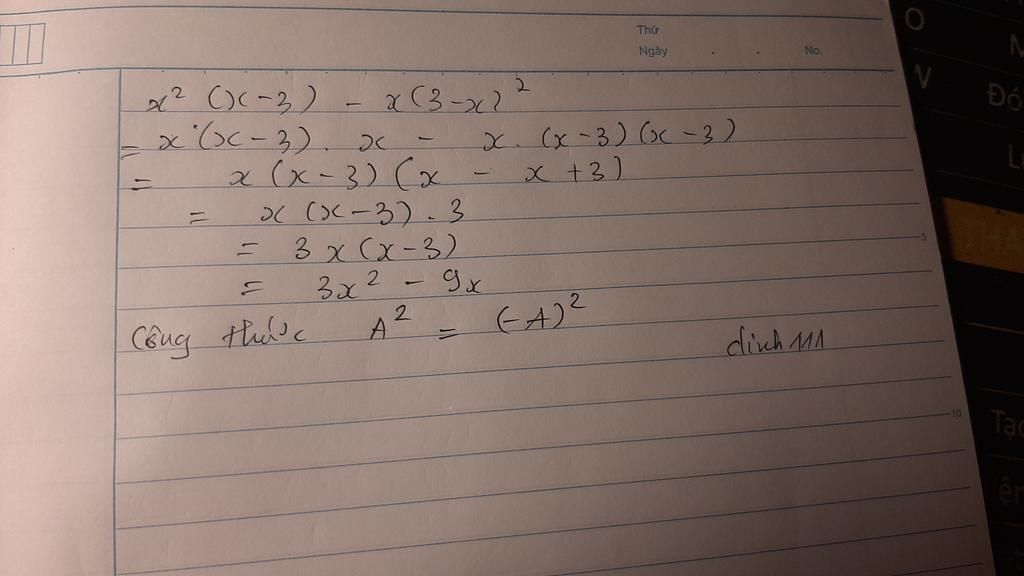 Thứ
Ngày . . No.
x² (x-3) - x(3-x)²
= x·(x-3). x - x. (x-3)(x-3)
= x(x-3)(x - x+3)
= x(x-3).3
= 3x(x-3)
= 3x² - 9x
Công thức A² = (-A)²
dinh111
5
10
O
V
Đó
Tạo